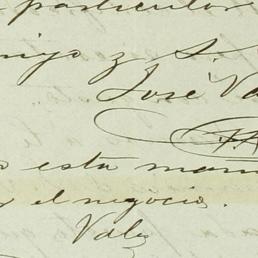 particular
migo y S.
José Va
esta man
el negocio.
Vale